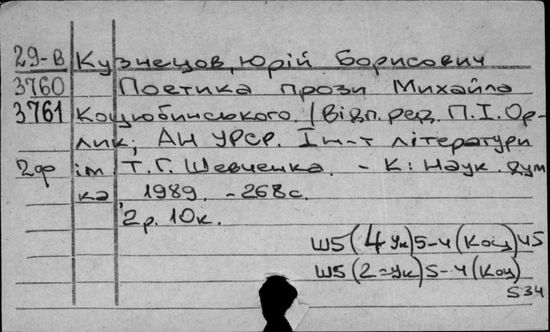 29-В Кузнецов, Юрій Борисович
3760 Поетика прози Михайла
3761 Коцюбинського. / Відп. ред. П.І. Ор-
лик; АН УРСР. Ін-т літератури
2ф ім Т.Г. Шевченка. - К: Наук. дум
ка 1989. - 268с.
2р. 10к.
Ш5(4Ук)5-4(Коц)45
Ш5(2=Ук)5-4(Коц)
534